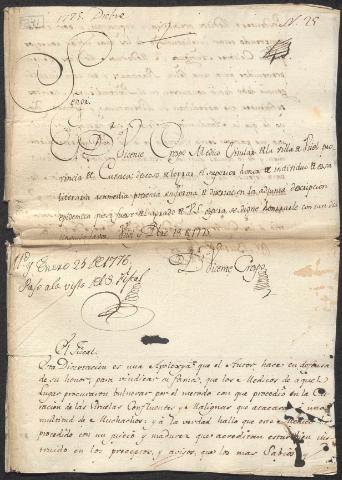 1775. Dicbre
N. 25
Señor
Dn. Vicente Crespo Medico titular de la villa de Tuexl pro
vincia de Cuenca; deseoso de lograr el superior honor de individuo de essa
literaria concedia presenta en forma de disertacion la adjunta descripcion
epidemica para que si es del agrado de V.S. espera se digne honrarle con tan dis
Dbre 18 de 1775
Vicente Crespo
y Enero 25 de 1776.
Pase a la vista del S. Fiscal
El Fiscal
Esta Disertación es una Apología que el Autor hace en defensa
de su honor, para vindicar su fama, que los Medicos de aquel
lugar procuraron vulnerar, por el metodo con que procedió en la Cu
racion de las Viruelas Confluentes, y Malignas que atacaron a una
multitud de Muchachos: y a la verdad hallo que este Medico
procedió con un juicio y madurez que acreditan estar bien ins
truido en los preceptos, y avisos, que los mas Sabios